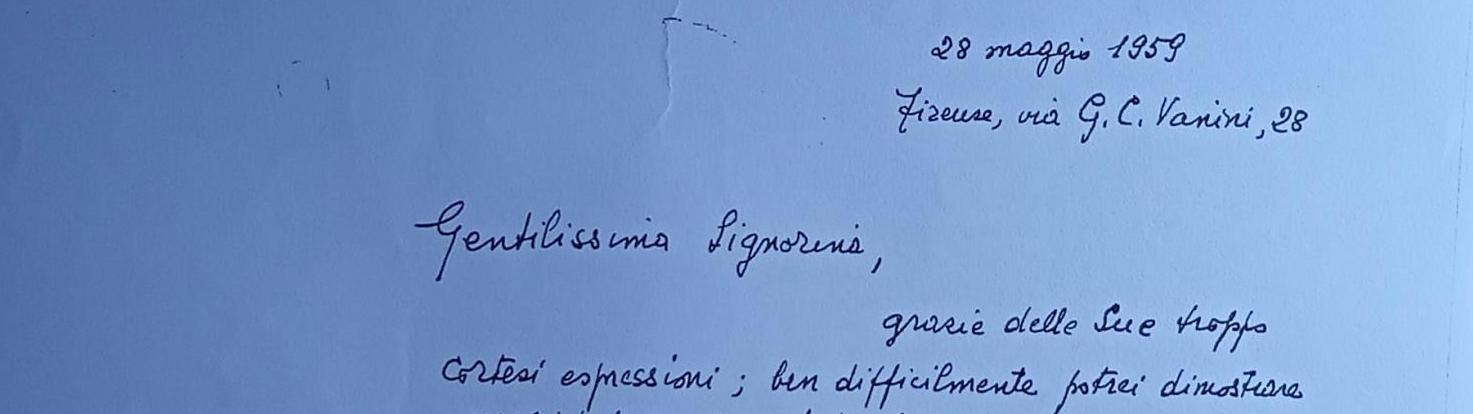 28 maggio 1959
Firenze, via G. C. Vanini, 28
Gentilissima Signorina,
grazie delle Sue troppo
cortesi espressioni; ben difficilmente potrei dimostrare